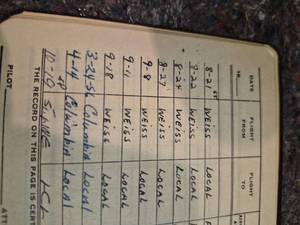 DATE FLIGHT FROM FLIGHT TO
19
8-21 WEISS LOCAL
8-22 WEISS LOCAL
8-24 WEISS LOCAL
8-27 WEISS LOCAL
9-8 WEISS LOCAL
9-11 WEISS LOCAL
9-18 WEISS LOCAL
Columbia Local
4-14 Columbia Local
10-19 LCL
THE RECORD ON THIS PAGE IS CERT
PILOT
ATT